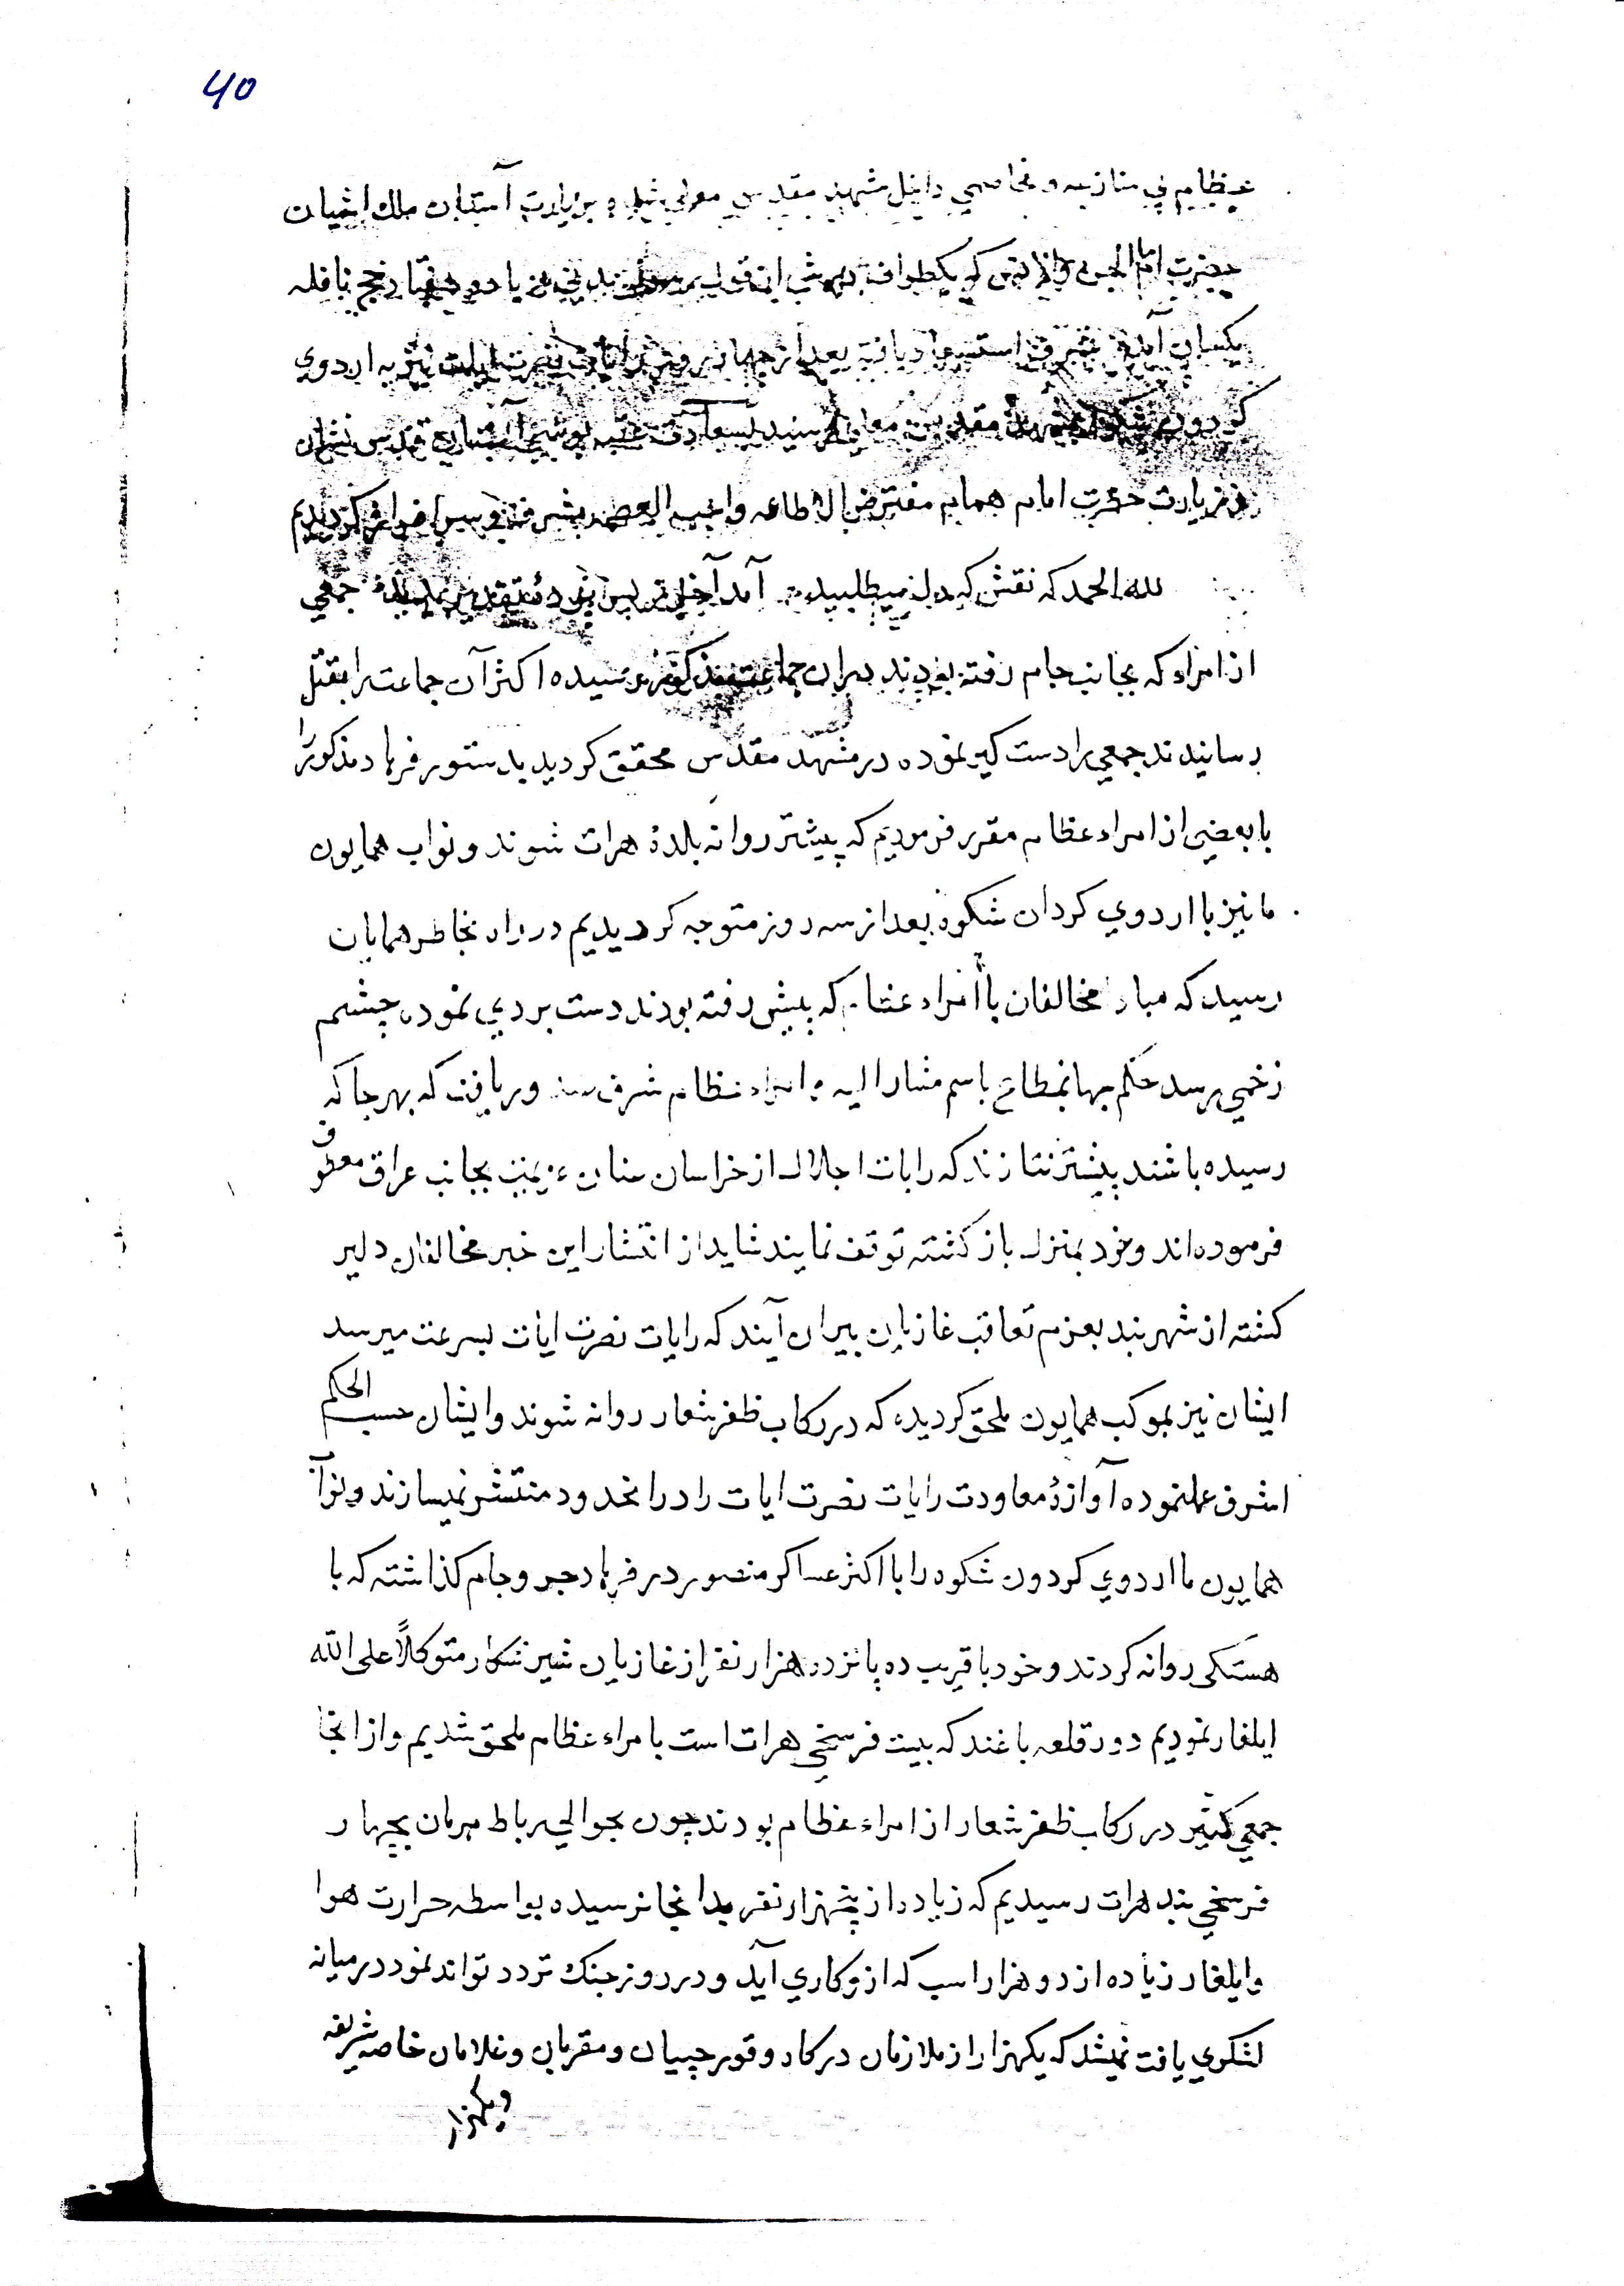 40
عظام بی منازعه و مخاصمی داخل مشهد مقدس معلی شده بزیارت آستان ملک اشیان
حضرت امام الجن والانس که یکطواف
بشرف استسعاد یافته بعد از چهار روز نصرت ایات نیز به اردوی
کردون شکوه مقدس معلی رسید بسعادت عتبه بوسی قدس نشان
زیارت حضرت امام همام مفترض الاطاعه واجب العصمه مشرف کردیدیم
لله الحمد که نقش که دل میطلبید آمد آخر ز پس پرده تقدیر پدید جمعی
از امراء که بجانب جام رفته بودند بران جماعت مذکور رسیده اکثر آن جماعت را بقتل
رسانیدند جمعی را دست کیر نموده در مشهد مقدس محقق کردید بدستور فرهاد مذکور را
با بعضی از امراء عظام مقرر فرمودیم که پیشتر روانه بلدهٔ هرات شوند و نواب همایون
ما نیز با اردوی کردان شکوه بعد از سه روز متوجه کردیدیم در راه بخاطر همایان
رسید که مبادا مخالفان با امراء عظام که پیش رفته بودند دست بردی نموده چشم
زخمی برسد حکم جهانمطاع باسم مشارا الیه و امراء عظام شرف صدور یافت که بهر جا که
رسیده باشند پیشتر نتازند که رایات اجلال از خراسان عنان عزیمت بجانب عراق معطوف
فرموده اند و خود بمنزل باز کشته توقف نمایند شاید از انتشار این خبر مخالفان دلیر
کشته از شهر بند بعزم تعاقب غازیان بیران آیند که رایات نصرت ایات بسرعت میرسد
ایشان نیز بموکب همایون ملحق کردیده که در رکاب ظفر شعار روانه شوند و ایشان حسب الحکم
اشرف عملنموده آوازهٔ معاودت رایات نصرت ایات را در انحدود منتشر نمیسازند و نواب
همایون ما اردوی کردون شکوه را با اکثر عساکر منصور در فرهادجرد و جام کذاشته که با
هستکی روانه کردند و خود با قریب ده پانزده هزار نفر از غازیان شیر شکار متوکلاً علی الله
ایلغار نمودیم دور قلعه باغند که بیت فرسخی هرات است با مراء عظام ملحق شدیم و از انجا
جمعی کثیر در رکاب ظفر شعار از امراء عظام بودند چون بحوالی رباط میرمان بچهار
فرسخی بند هرات رسیدیم که زیاده از پنجهزار نفر بدانجا نرسیده بواسطه حرارت هوا
و ایلغار زیاده از دو هزار اسب که از و کاری آید و در روز جنک تردد تواند نمود در میانه
لشکری یافت نمیشد که یکهزار از ملازمان درکاه و قورچییان و مقربان و غلامان خاصه شریفه
ویکهزار